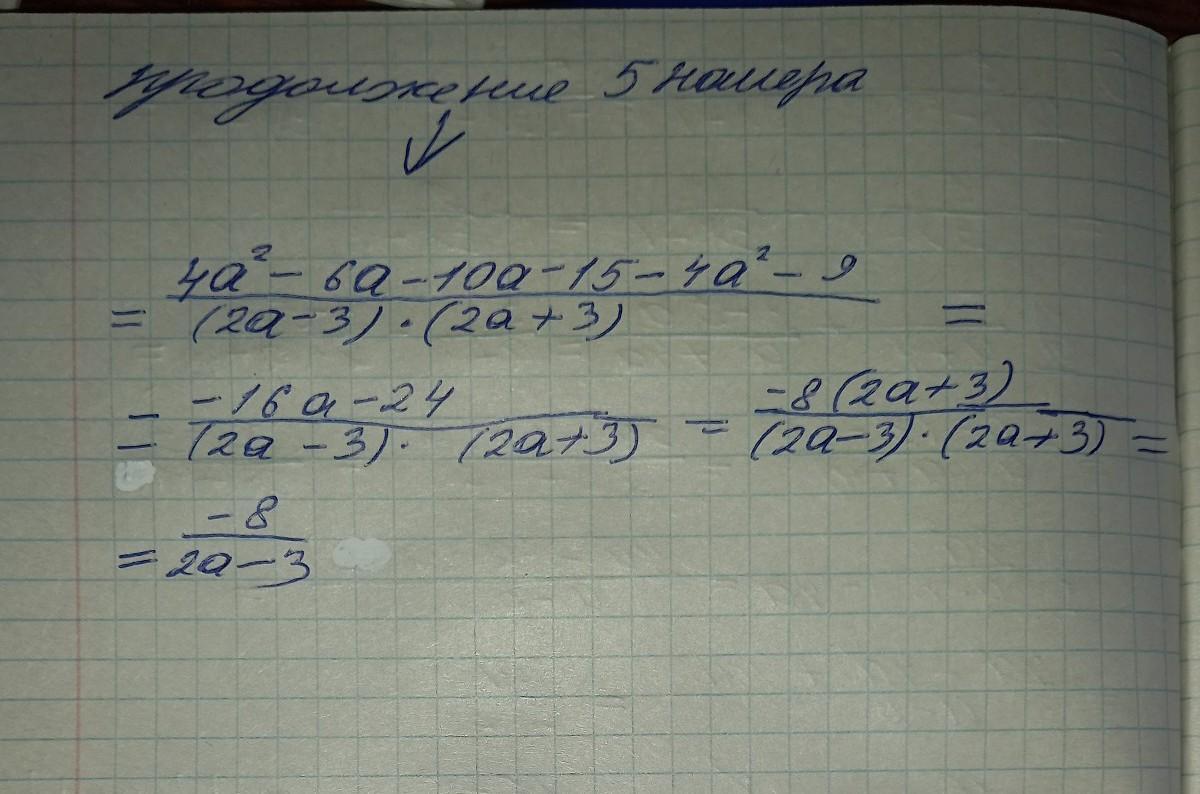 продолжение 5 номера
= (4a² - 6a - 10a - 15 - 4a² - 9) / ((2a - 3) · (2a + 3)) =
= (-16a - 24) / ((2a - 3) · (2a + 3)) = (-8(2a + 3)) / ((2a - 3) · (2a + 3)) =
= (-8) / (2a - 3)